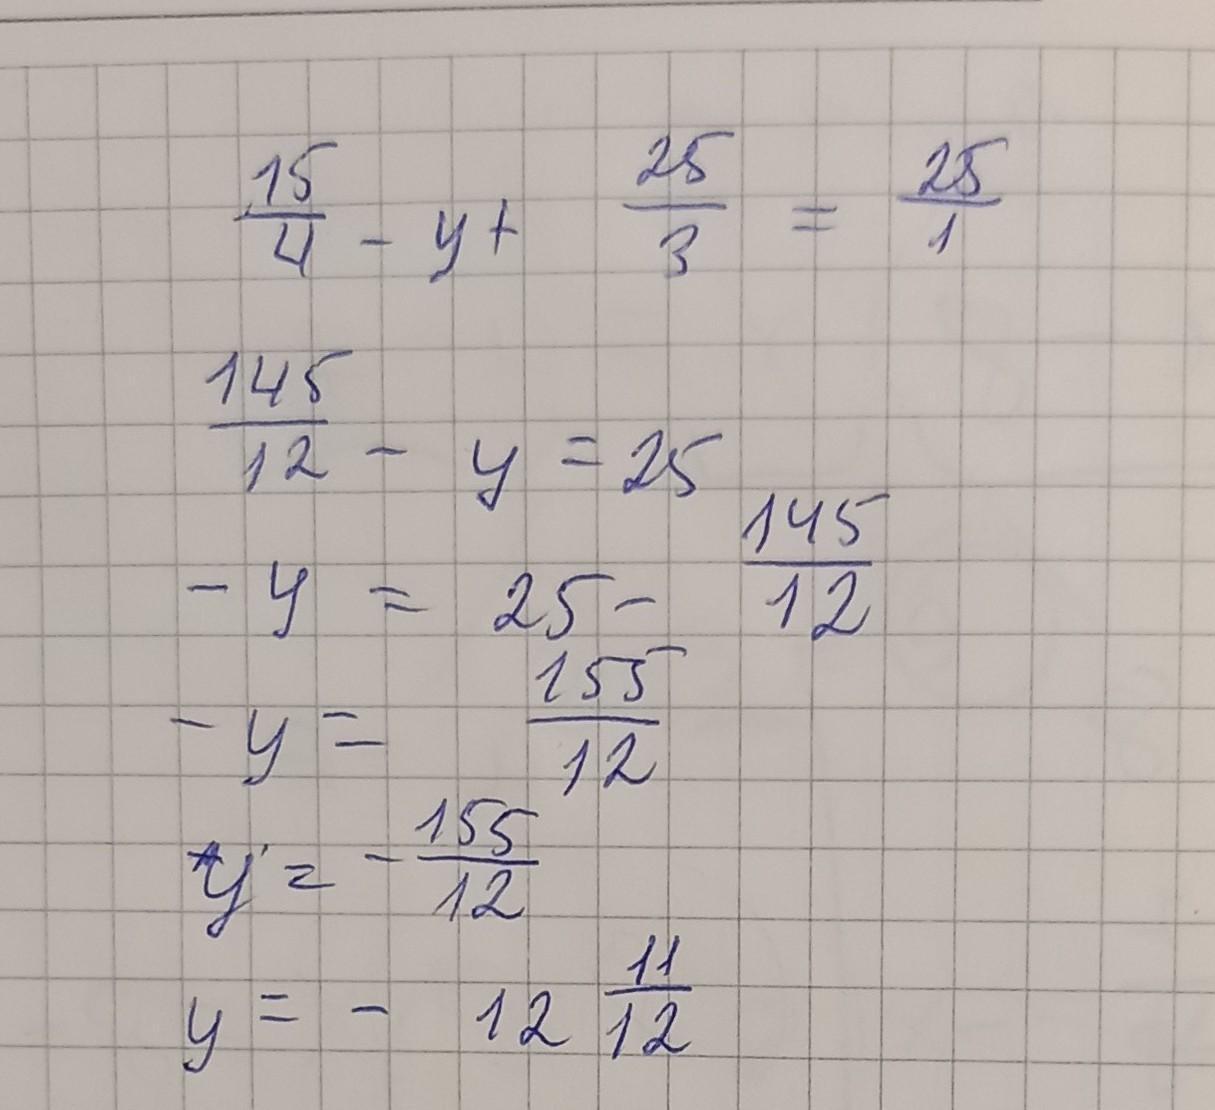 15/4 - y + 25/3 = 25/1
145/12 - y = 25
- y = 25 - 145/12
- y = 155/12
y = - 155/12
y = - 12 11/12